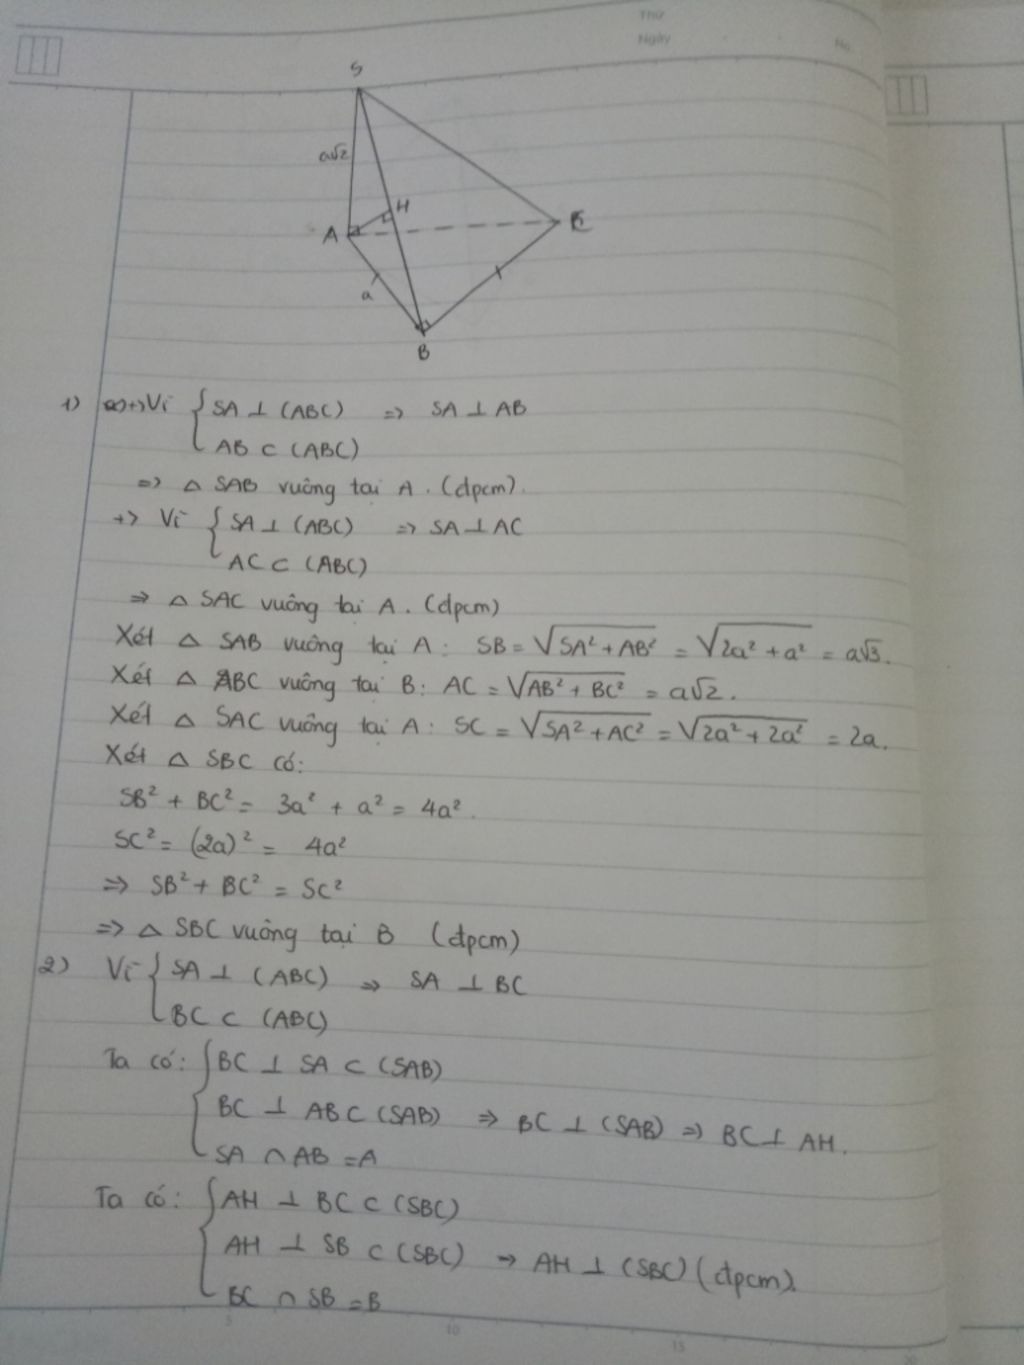 Thứ
Ngày
No.
S
a√2
H
A
C
a
B
1) +) Vì { SA ⊥ (ABC) => SA ⊥ AB
AB ⊂ (ABC)
=> △ SAB vuông tại A. (đpcm).
+> Vì { SA ⊥ (ABC) => SA ⊥ AC
AC ⊂ (ABC)
=> △ SAC vuông tại A. (đpcm)
Xét △ SAB vuông tại A: SB = √(SA² + AB²) = √(2a² + a²) = a√3.
Xét △ ABC vuông tại B: AC = √(AB² + BC²) = a√2.
Xét △ SAC vuông tại A: SC = √(SA² + AC²) = √(2a² + 2a²) = 2a.
Xét △ SBC có:
SB² + BC² = 3a² + a² = 4a².
SC² = (2a)² = 4a²
=> SB² + BC² = SC²
=> △ SBC vuông tại B (đpcm)
2) Vì { SA ⊥ (ABC) => SA ⊥ BC
BC ⊂ (ABC)
Ta có: { BC ⊥ SA ⊂ (SAB)
BC ⊥ AB ⊂ (SAB) => BC ⊥ (SAB) => BC ⊥ AH.
SA ∩ AB = A
Ta có: { AH ⊥ BC ⊂ (SBC)
AH ⊥ SB ⊂ (SBC) => AH ⊥ (SBC) (đpcm).
BC ∩ SB = B
5 10 15